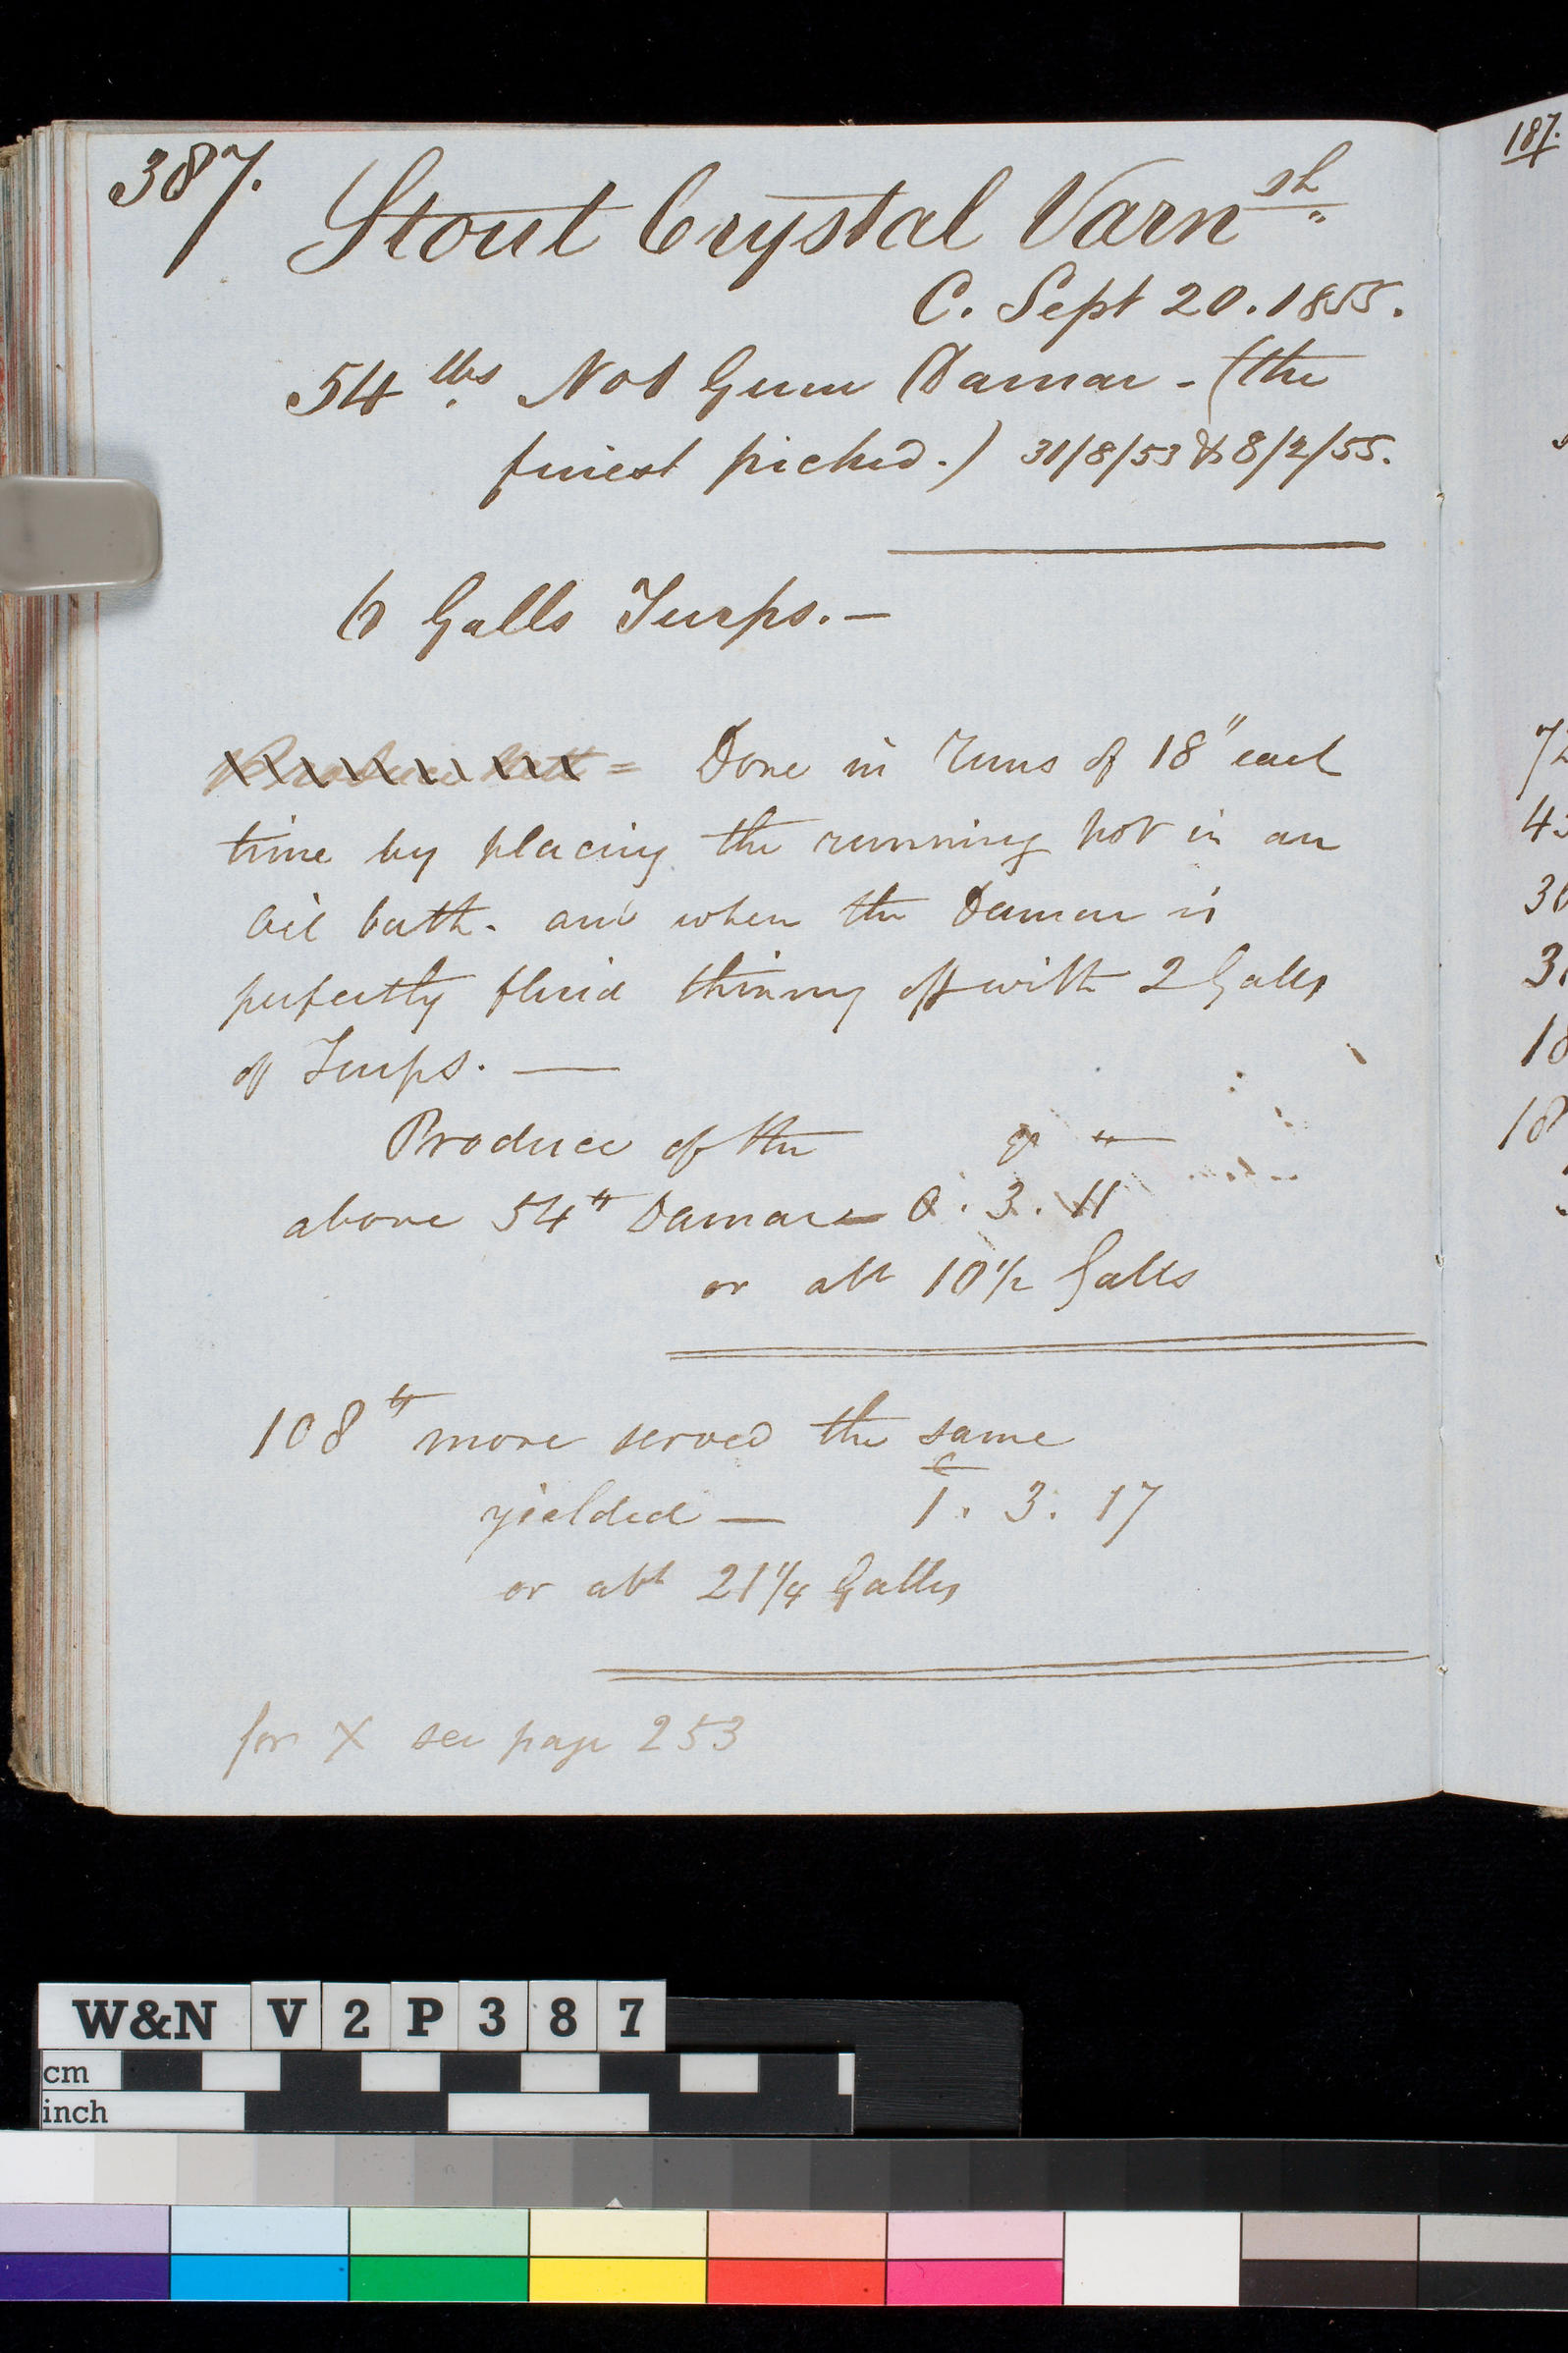 387.
187.
Stout Crystal Varnsh
C. Sept 20. 1855.
54 lbs No1 Gum Damar - (the
finest picked.) 31/8/53 & 8/2/55.
6 Galls Turps. —
= Done in runs of 18" each
time by placing the running pot in an
Oil bath. and when the Damar is
perfectly fluid thinning off with 2 Galls
of Turps. —
Produce of the
above 54 lb Damar — 0. 3. 11
or abt 10 1/2 Galls
108 lb more served the same
yielded — 1. 3. 17
or abt 21 1/4 Galls
for X see page 253
W&N V2P387
cm
inch